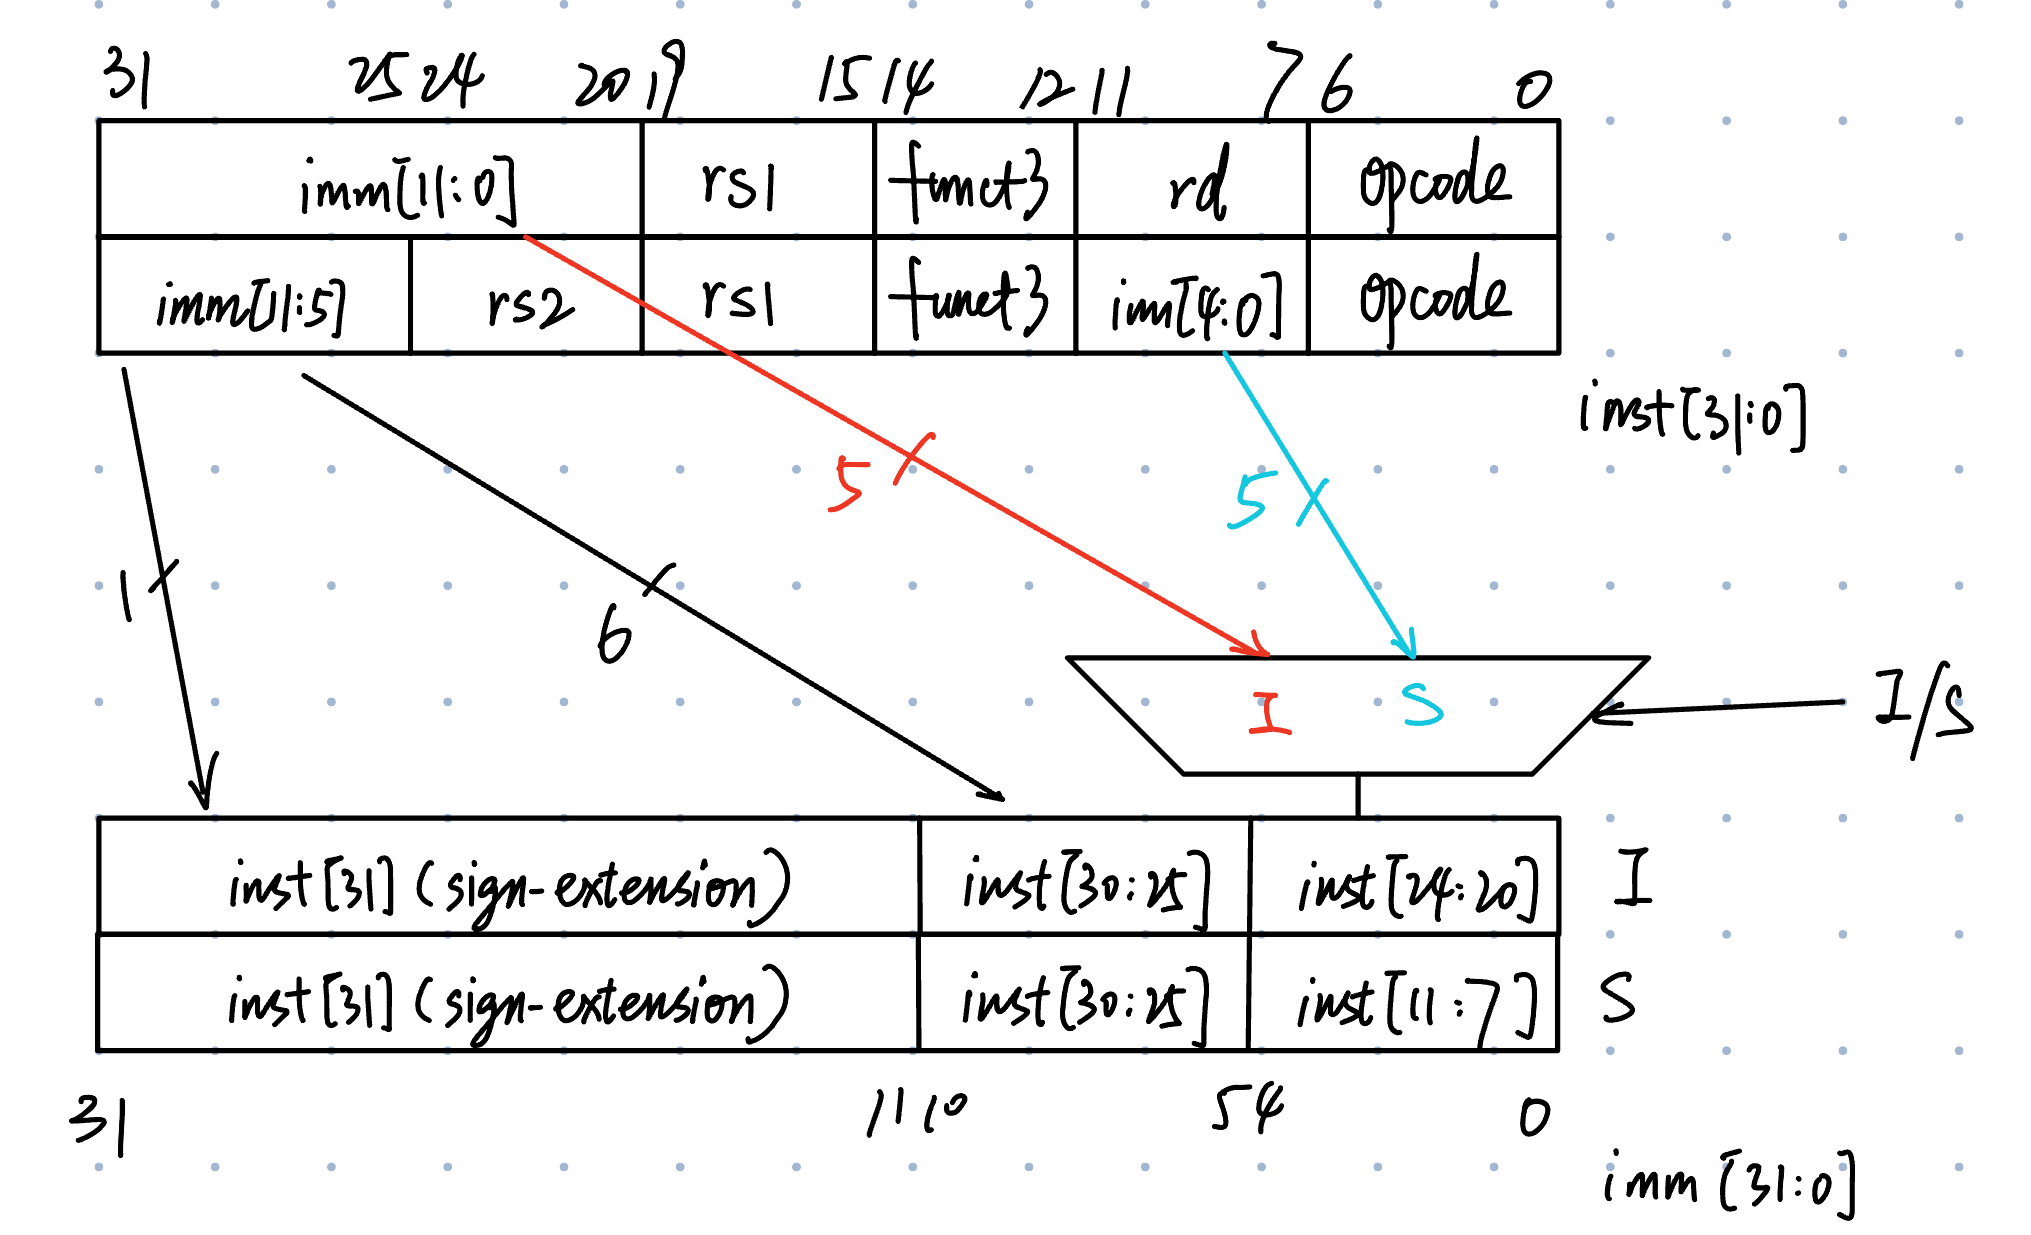 31 25 24 20 19 15 14 12 11 7 6 0
imm[11:0] rs1 funct3 rd opcode
imm[11:5] rs2 rs1 funct3 imm[4:0] opcode
inst[31:0]
5 5
1 6
I S I/S
inst[31] (sign-extension) inst[30:25] inst[24:20] I
inst[31] (sign-extension) inst[30:25] inst[11:7] S
31 11 10 5 4 0
imm [31:0]